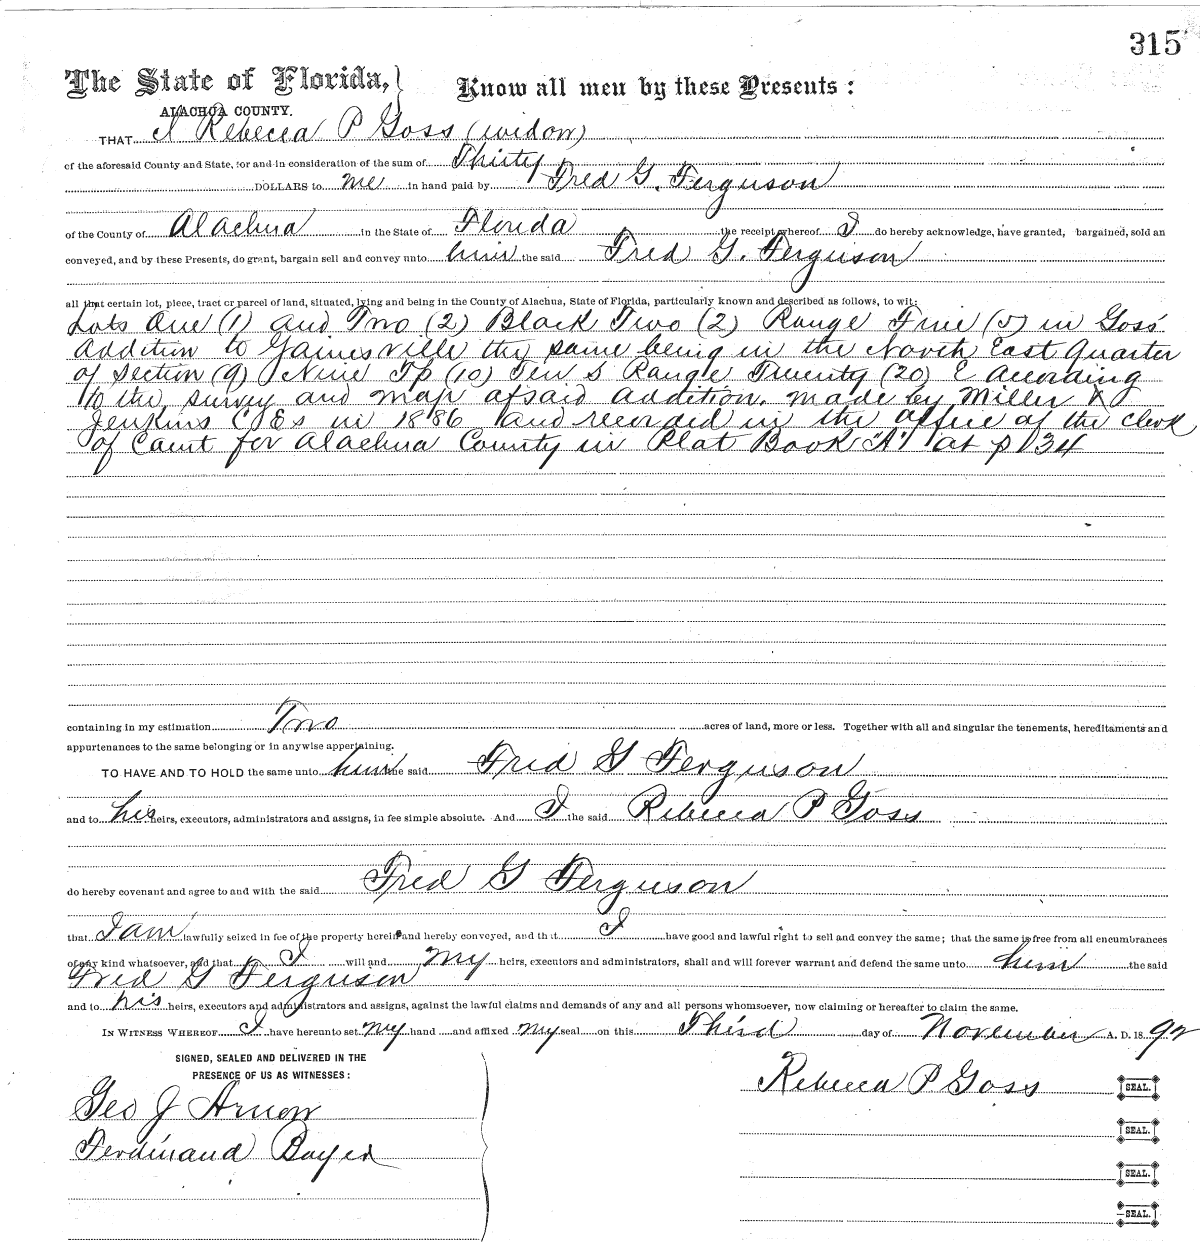 315
The State of Florida, Know all men by these Presents :
ALACHUA COUNTY.
THAT I Rebecca P Goss (widow)
of the aforesaid County and State, for and in consideration of the sum of Thirty
DOLLARS to me in hand paid by Fred G. Ferguson
of the County of Alachua in the State of Florida the receipt whereof I do hereby acknowledge, have granted, bargained, sold an
conveyed, and by these Presents, do grant, bargain sell and convey unto him the said Fred G. Ferguson
all that certain lot, piece, tract or parcel of land, situated, lying and being in the County of Alachua, State of Florida, particularly known and described as follows, to wit:
Lots One (1) and Two (2) Block Two (2) Range Five (5) in Goss'
Addition to Gainesville the same being in the North East Quarter
of Section (9) Nine Tp (10) Ten S Range Twenty (20) E according
to the survey and map afsaid addition. made by Miller &
Jenkins C Es in 1886 and recorded in the office of the clerk
of Court for Alachua County in Plat Book "A" at p 134
containing in my estimation Two acres of land, more or less. Together with all and singular the tenements, hereditaments and
appurtenances to the same belonging or in anywise appertaining.
TO HAVE AND TO HOLD the same unto him the said Fred G Ferguson
and to his heirs, executors, administrators and assigns, in fee simple absolute. And I the said Rebecca P Goss
do hereby covenant and agree to and with the said Fred G Ferguson
that I am lawfully seized in fee of the property herein and hereby conveyed, and that I have good and lawful right to sell and convey the same; that the same is free from all encumbrances
of any kind whatsoever, and that I will and my heirs, executors and administrators, shall and will forever warrant and defend the same unto him the said
Fred G Ferguson
and to his heirs, executors and administrators and assigns, against the lawful claims and demands of any and all persons whomsoever, now claiming or hereafter to claim the same.
IN WITNESS WHEREOF I have hereunto set my hand and affixed my seal on this Third day of November A. D. 18 92
SIGNED, SEALED AND DELIVERED IN THE
PRESENCE OF US AS WITNESSES :
Rebecca P Goss SEAL.
Geo J Arnow
SEAL.
Ferdinand Bayer
SEAL.
SEAL.